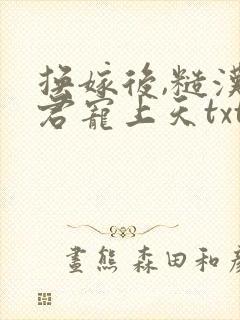 换嫁後,糙漢
君寵上天txt
畫熊 森田和彥